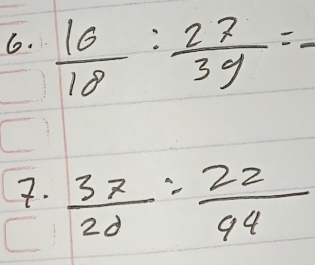 6. 16/18 : 27/39 =
7. 37/20 : 22/94